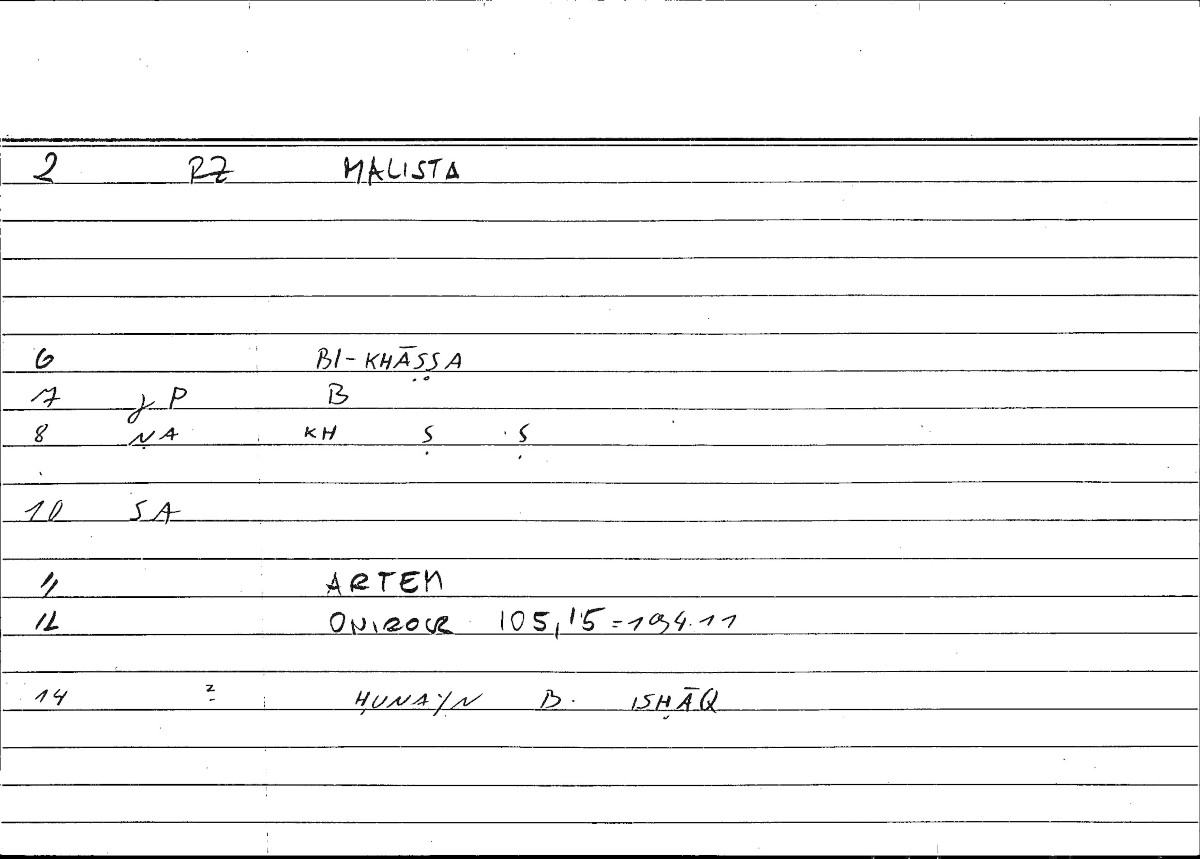 2 RZ MALISTA
6 BI-KHĀṢṢA
7 P B
8 ṆA KH Ṣ Ṣ
10 SA
11 ARTEM
12 ONIROCR 105,15=194.11
14 2 ḤUNAYN B. ISḤĀQ